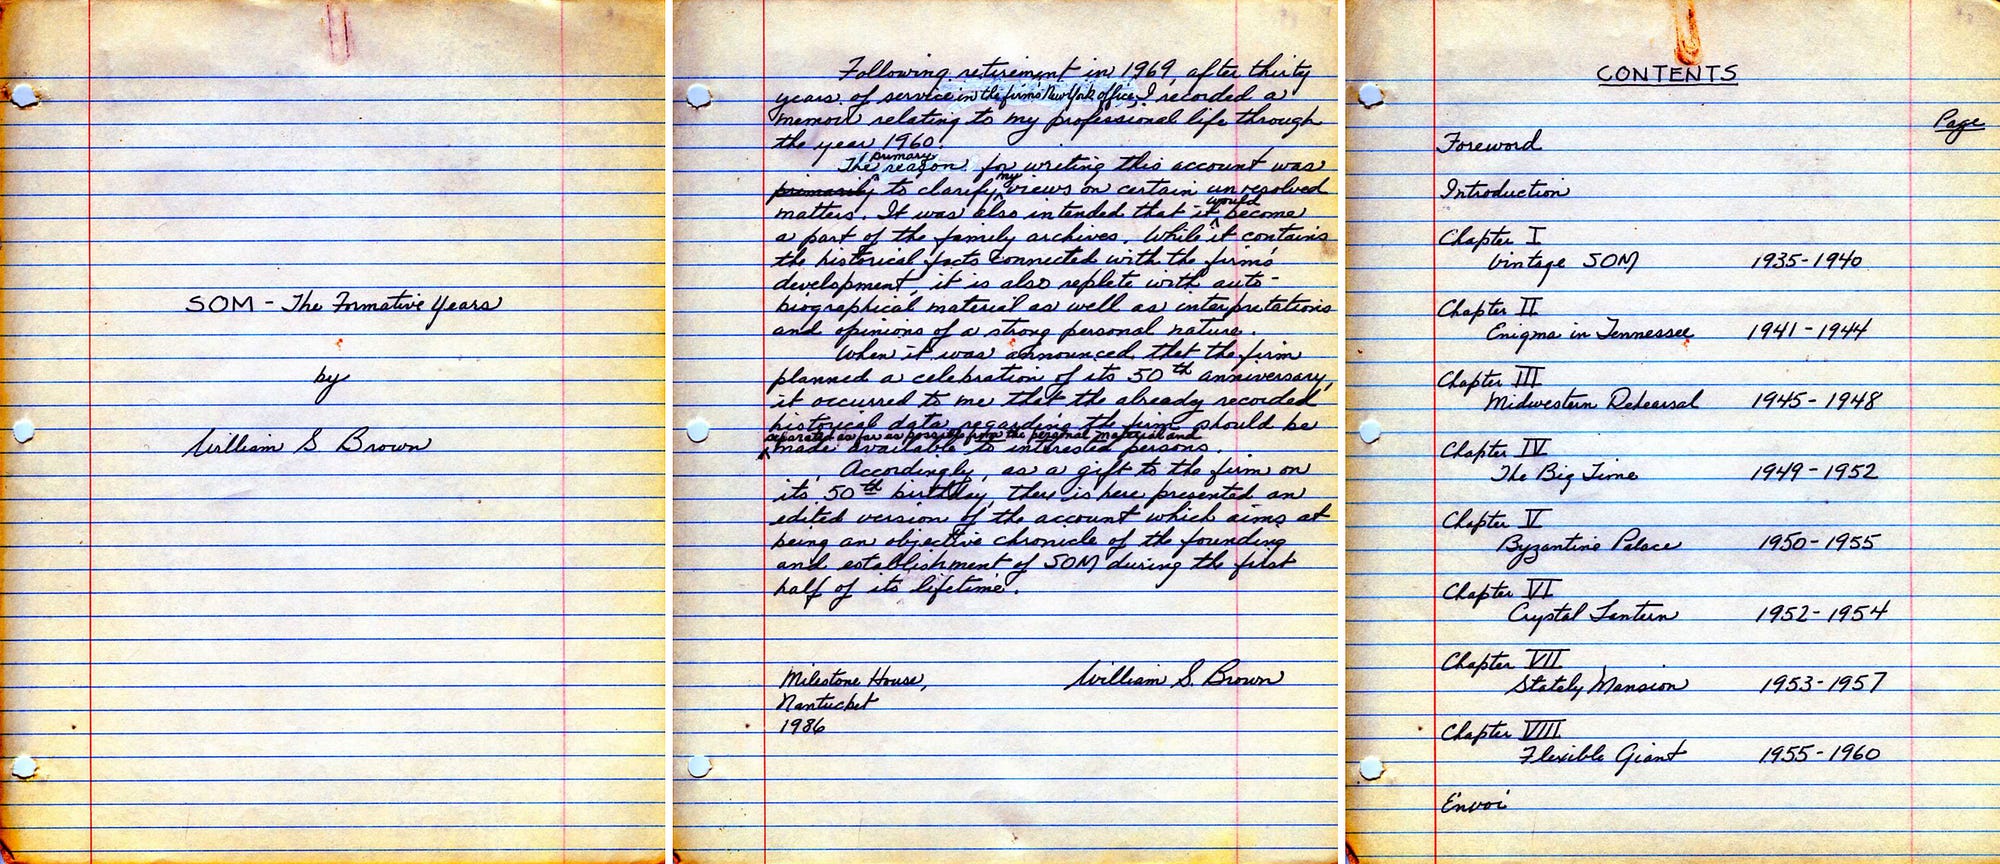 SOM - The Formative Years
by
William S Brown
Following retirement in 1969, after thirty
years of service in the firm's New York office, I recorded a
memoir relating to my professional life through
the year 1960.
The primary reason for writing this account was
primarily to clarify my views on certain unresolved
matters. It was also intended that it would become
a part of the family archives. While it contains
the historical facts connected with the firm's
development, it is also replete with auto-
biographical material as well as interpretations
and opinions of a strong personal nature.
When it was announced that the firm
planned a celebration of its 50th anniversary,
it occurred to me that the already recorded
historical data regarding the firm should be
separated as far as possible from the personal material and
made available to interested persons.
Accordingly, as a gift to the firm on
its 50th birthday, there is here presented an
edited version of the account which aims at
being an objective chronicle of the founding
and establishment of SOM during the first
half of its lifetime.
Milestone House,
Nantucket
1986
William S. Brown
CONTENTS
Page
Foreword
Introduction
Chapter I
Vintage SOM 1935-1940
Chapter II
Enigma in Tennessee 1941-1944
Chapter III
Midwestern Rehearsal 1945-1948
Chapter IV
The Big Time 1949-1952
Chapter V
Byzantine Palace 1950-1955
Chapter VI
Crystal Lantern 1952-1954
Chapter VII
Stately Mansion 1953-1957
Chapter VIII
Flexible Giant 1955-1960
Envoi